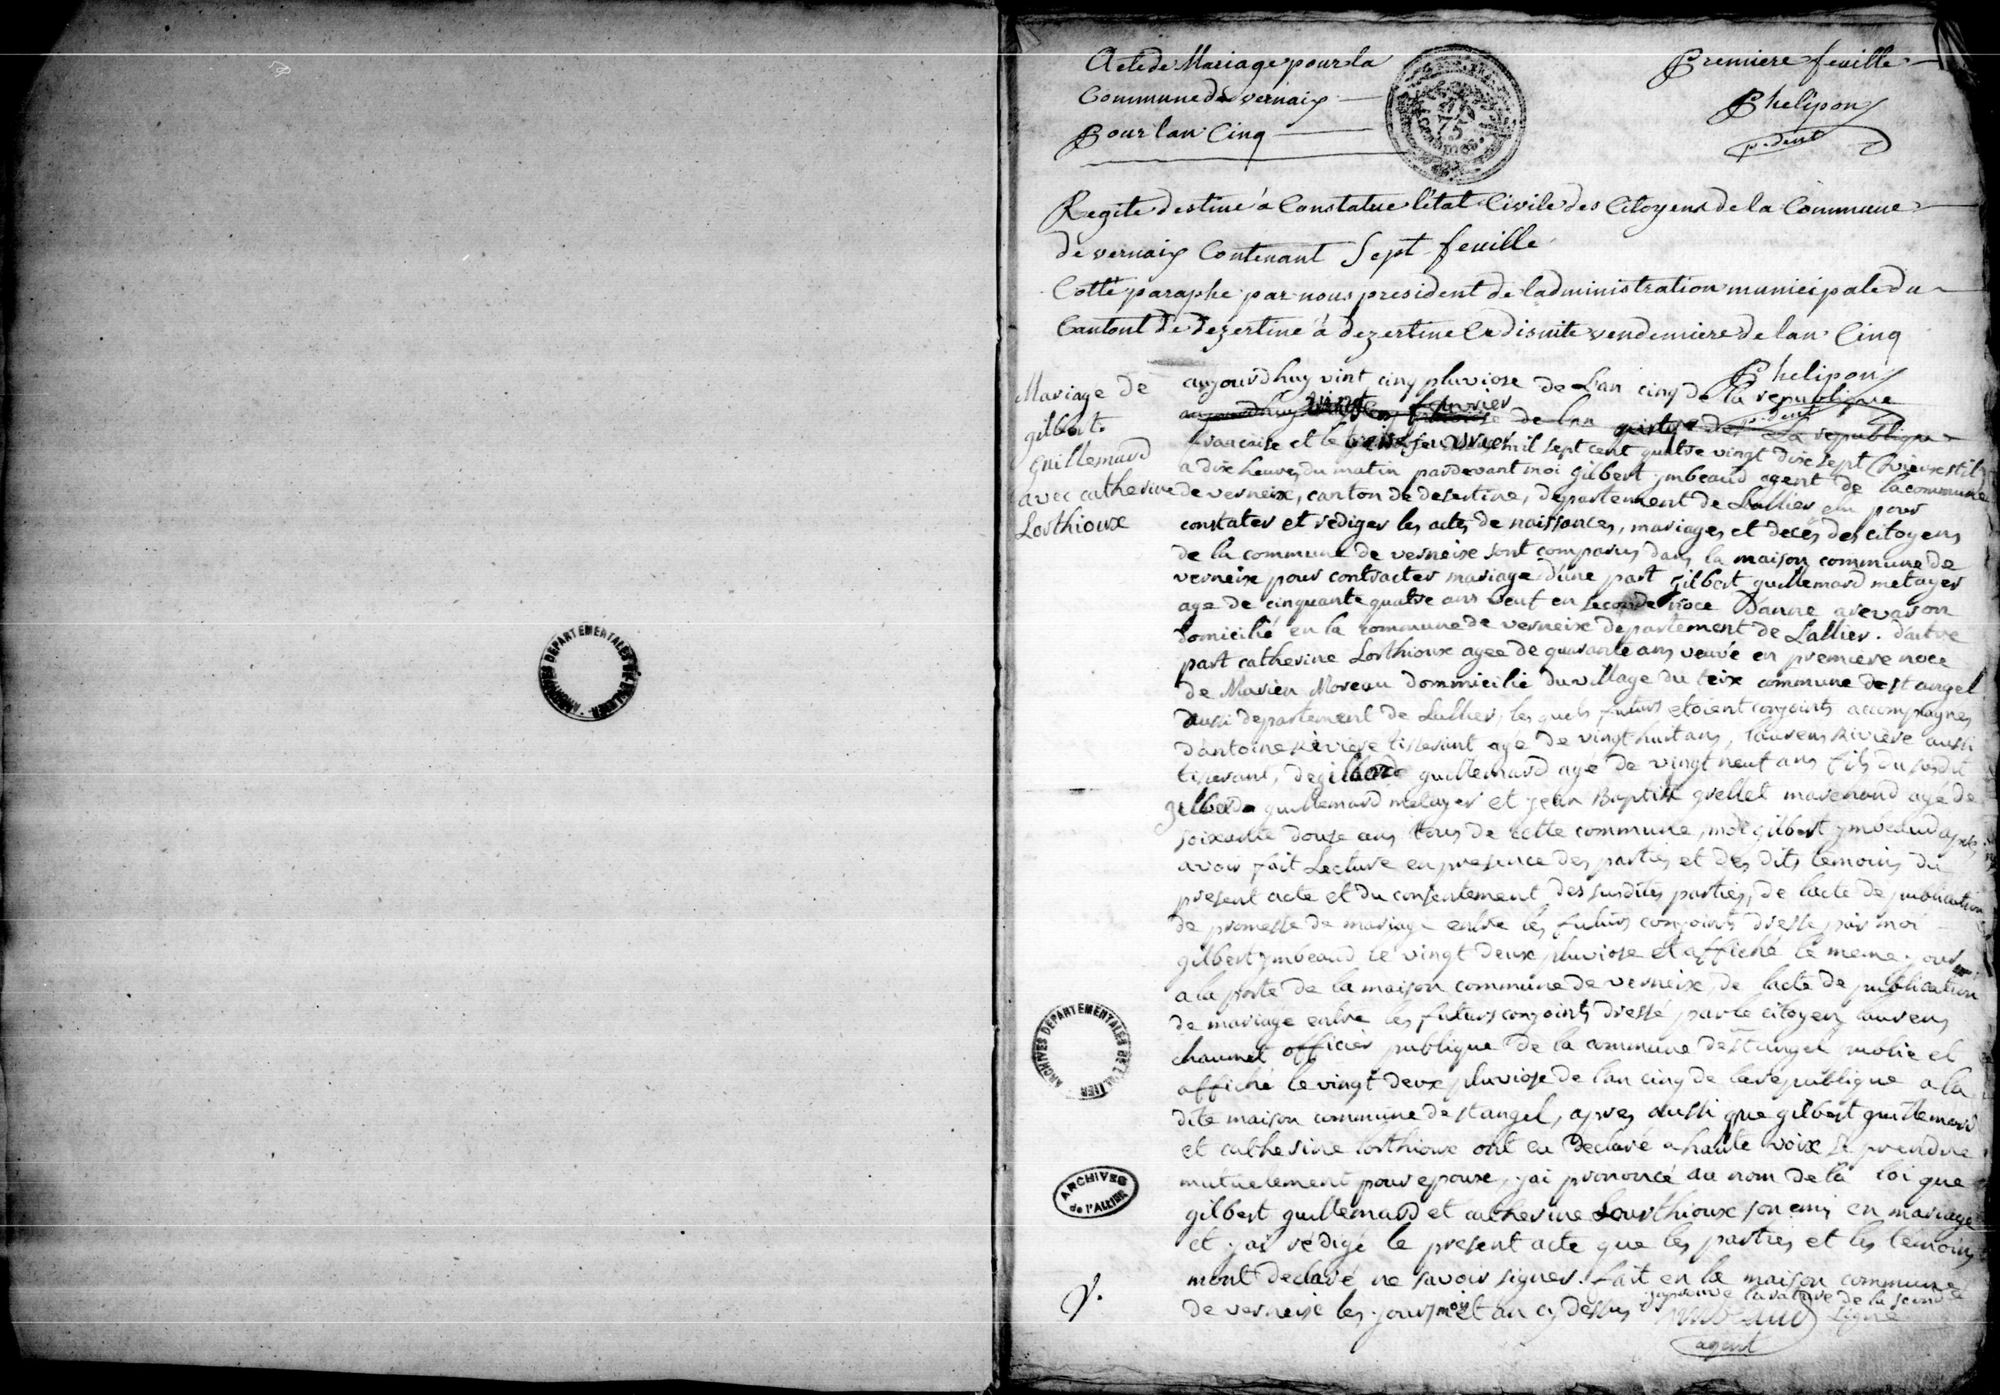 Acte de Mariage pour la
Commune de vernaix
Pour lan Cinq
75
Centimes
Premiere feuille
Phelipon
p.dent
Regite destiné à Constatue letat Civile des Citoyens de la Commune
de vernaix Contenant Sept feuille
Cotté paraphe par nous president de ladministration municipale du
Cantont de dezertine à dezertine Ce disuite vendemiere de lan Cinq
Phelipon
p.dent
Mariage de
gilbert
guillemard
avec catherine
Lorthioux
aujourdhuy vint cinq pluviose de Lan cinq de la republique
aujourdhuy de lan de la republique
francaise et le treize fevrier mil sept cent quatre vingt dix sept (vieux stil
a dix heures du matin pardevant moi gilbert ymbeaud agent de la commune
de verneix, canton de desertine, departement de Lallier elu pour
constater et rediger les actes de naissances, mariages et deces des citoyens
de la commune de verneix sont comparus dans la maison commune de
verneix pour contracter mariage d'une part gilbert guillemard metayer
age de cinquante quatre ans veuf en seconde noce Danne
domicilié en la commune de verneix departement de Lallier. dautre
part catherine Lorthioux agee de quarante ans veuve en premiere noce
de Marien Moreau dommicilie du village du teix commune de st angel
aussi departement de Lallier, les quels futurs etoient conjoints accompagnes
dantoine riviere tisserant agé de vingt huit ans, laurens riviere aussi
tiserant, de gilbard guillemard age de vingt neuf ans fils du susdit
gilbard guillemard metayer et jean Baptiste grellet marchand agé de
soixante douze ans tous de cette commune, moi gilbert ymbeaud apres
avoir fait Lecture en presence des parties et des dits temoins du
present acte et du consentement des susdites parties, de lacte de publication
de promesse de mariage entre les futurs conjoints dressé par moi
gilbert ymbeaud le vingt deux pluviose et affiché le meme jour
a la porte de la maison commune de verneix, de lacte de publication
de mariage entre les futurs conjoints dressé par le citoyen laurens
chaumet officier publique de la commune de st angel publie et
affiché le vingt deux pluviose de lan cinq de la republique a la
dite maison commune de st angel, apres aussi que gilbert guillemard
et catherine lorthioux ont eu declaré a haute voix se prendre
mutuelement pour epoux, jai prononcé au nom de la loi que
gilbert guillemard et catherine Lourthioux son unis en mariage
et jai rédigé le present acte que les parties et les temoins
mont declaré ne savoir signer. fait en la maison commune
de verneix les jours mois et an cy dessus japrouve la rature de la seconde
ligne
ymbeaud
agent
ARCHIVES DÉPARTEMENTALES DE L'ALLIER
ARCHIVES DÉPARTEMENTALES DE L'ALLIER
ARCHIVES
de l'ALLIER